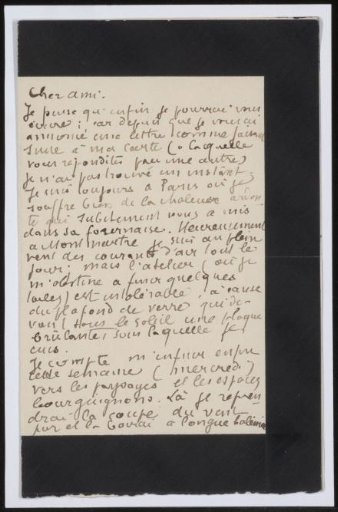 Cher ami.
Je pense qu'enfin je pourrai vous
écrire; car depuis que je vous ai
annoncé une lettre comme
suite à ma carte (à laquelle
vous répondîtes par une autre)
je n'ai pas trouvé un instant.
Je suis toujours à Paris où je
souffre bien de la chaleur
qui subitement nous a mis
dans sa fournaise. Heureusement
à Montmartre je suis au plein
vent des courants d'air tout le
jour; mais l'atelier (où je
m'obstine à finir quelques
toiles) est intolérable, à cause
du plafond de verre qui de-
vant sous le soleil une plaque
brûlante, sous laquelle je
cuis.
Je compte m'enfuir enfin
cette semaine (mercredi)
vers les paysages et les espaces
bourguignons. Là je repren
drai la coupe du vent
pur et la à longue haleine